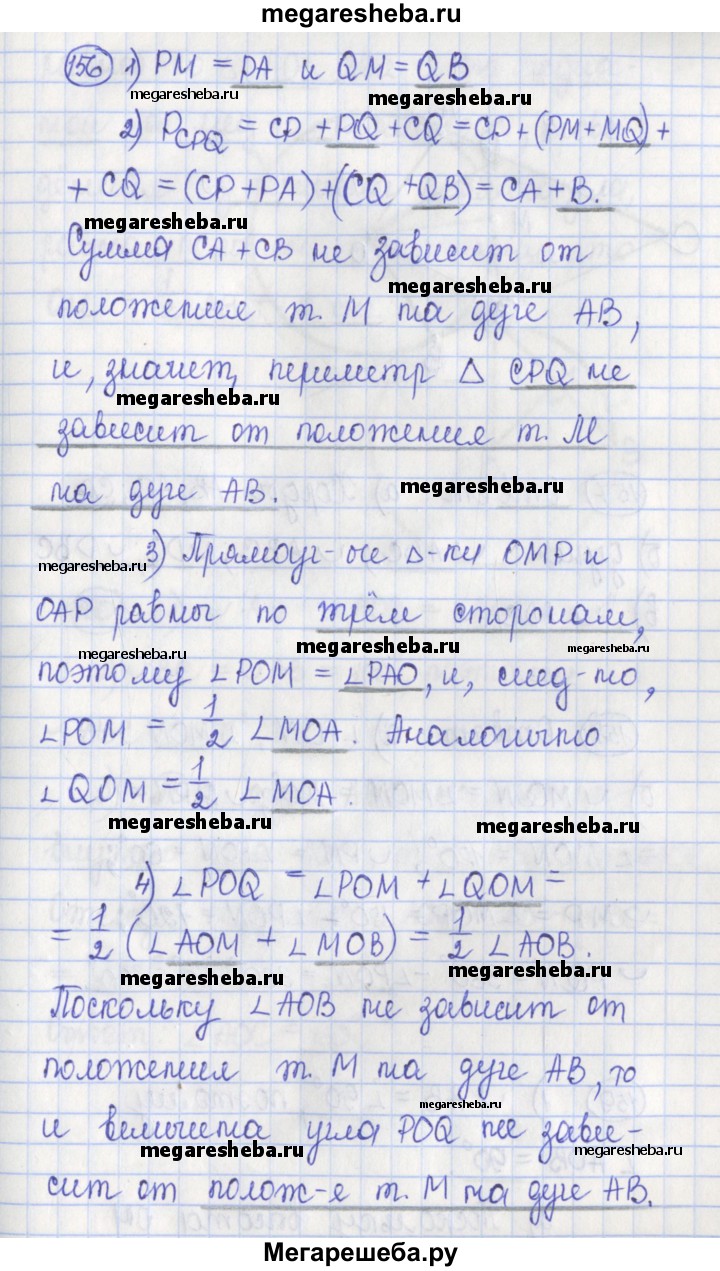 megaresheba.ru
156 1) PM = PA и QM = QB
megaresheba.ru megaresheba.ru
2) P_CPQ = CP + PQ + CQ = CP + (PM + MQ) +
+ CQ = (CP + PA) + (CQ + QB) = CA + B.
megaresheba.ru
Сумма CA + CB не зависит от
megaresheba.ru
положения т. М на дуге AB,
и, значит, периметр △ CPQ не
megaresheba.ru
зависит от положения т. М
на дуге AB. megaresheba.ru
3) Прямоуг-ые △-ки OMP и
megaresheba.ru
OAP равны по трём сторонам,
megaresheba.ru megaresheba.ru megaresheba.ru
поэтому ∠POM = ∠PAO, и, след-но,
∠POM = 1/2 ∠MOA. Аналогично
∠QOM = 1/2 ∠MOA.
megaresheba.ru megaresheba.ru
4) ∠POQ = ∠POM + ∠QOM =
= 1/2 (∠AOM + ∠MOB) = 1/2 ∠AOB.
megaresheba.ru megaresheba.ru
Поскольку ∠AOB не зависит от
положения т. М на дуге AB, то
megaresheba.ru
и величина угла POQ не зави-
megaresheba.ru megaresheba.ru
сит от полож-я т. М на дуге AB.
Мегарешеба.ру